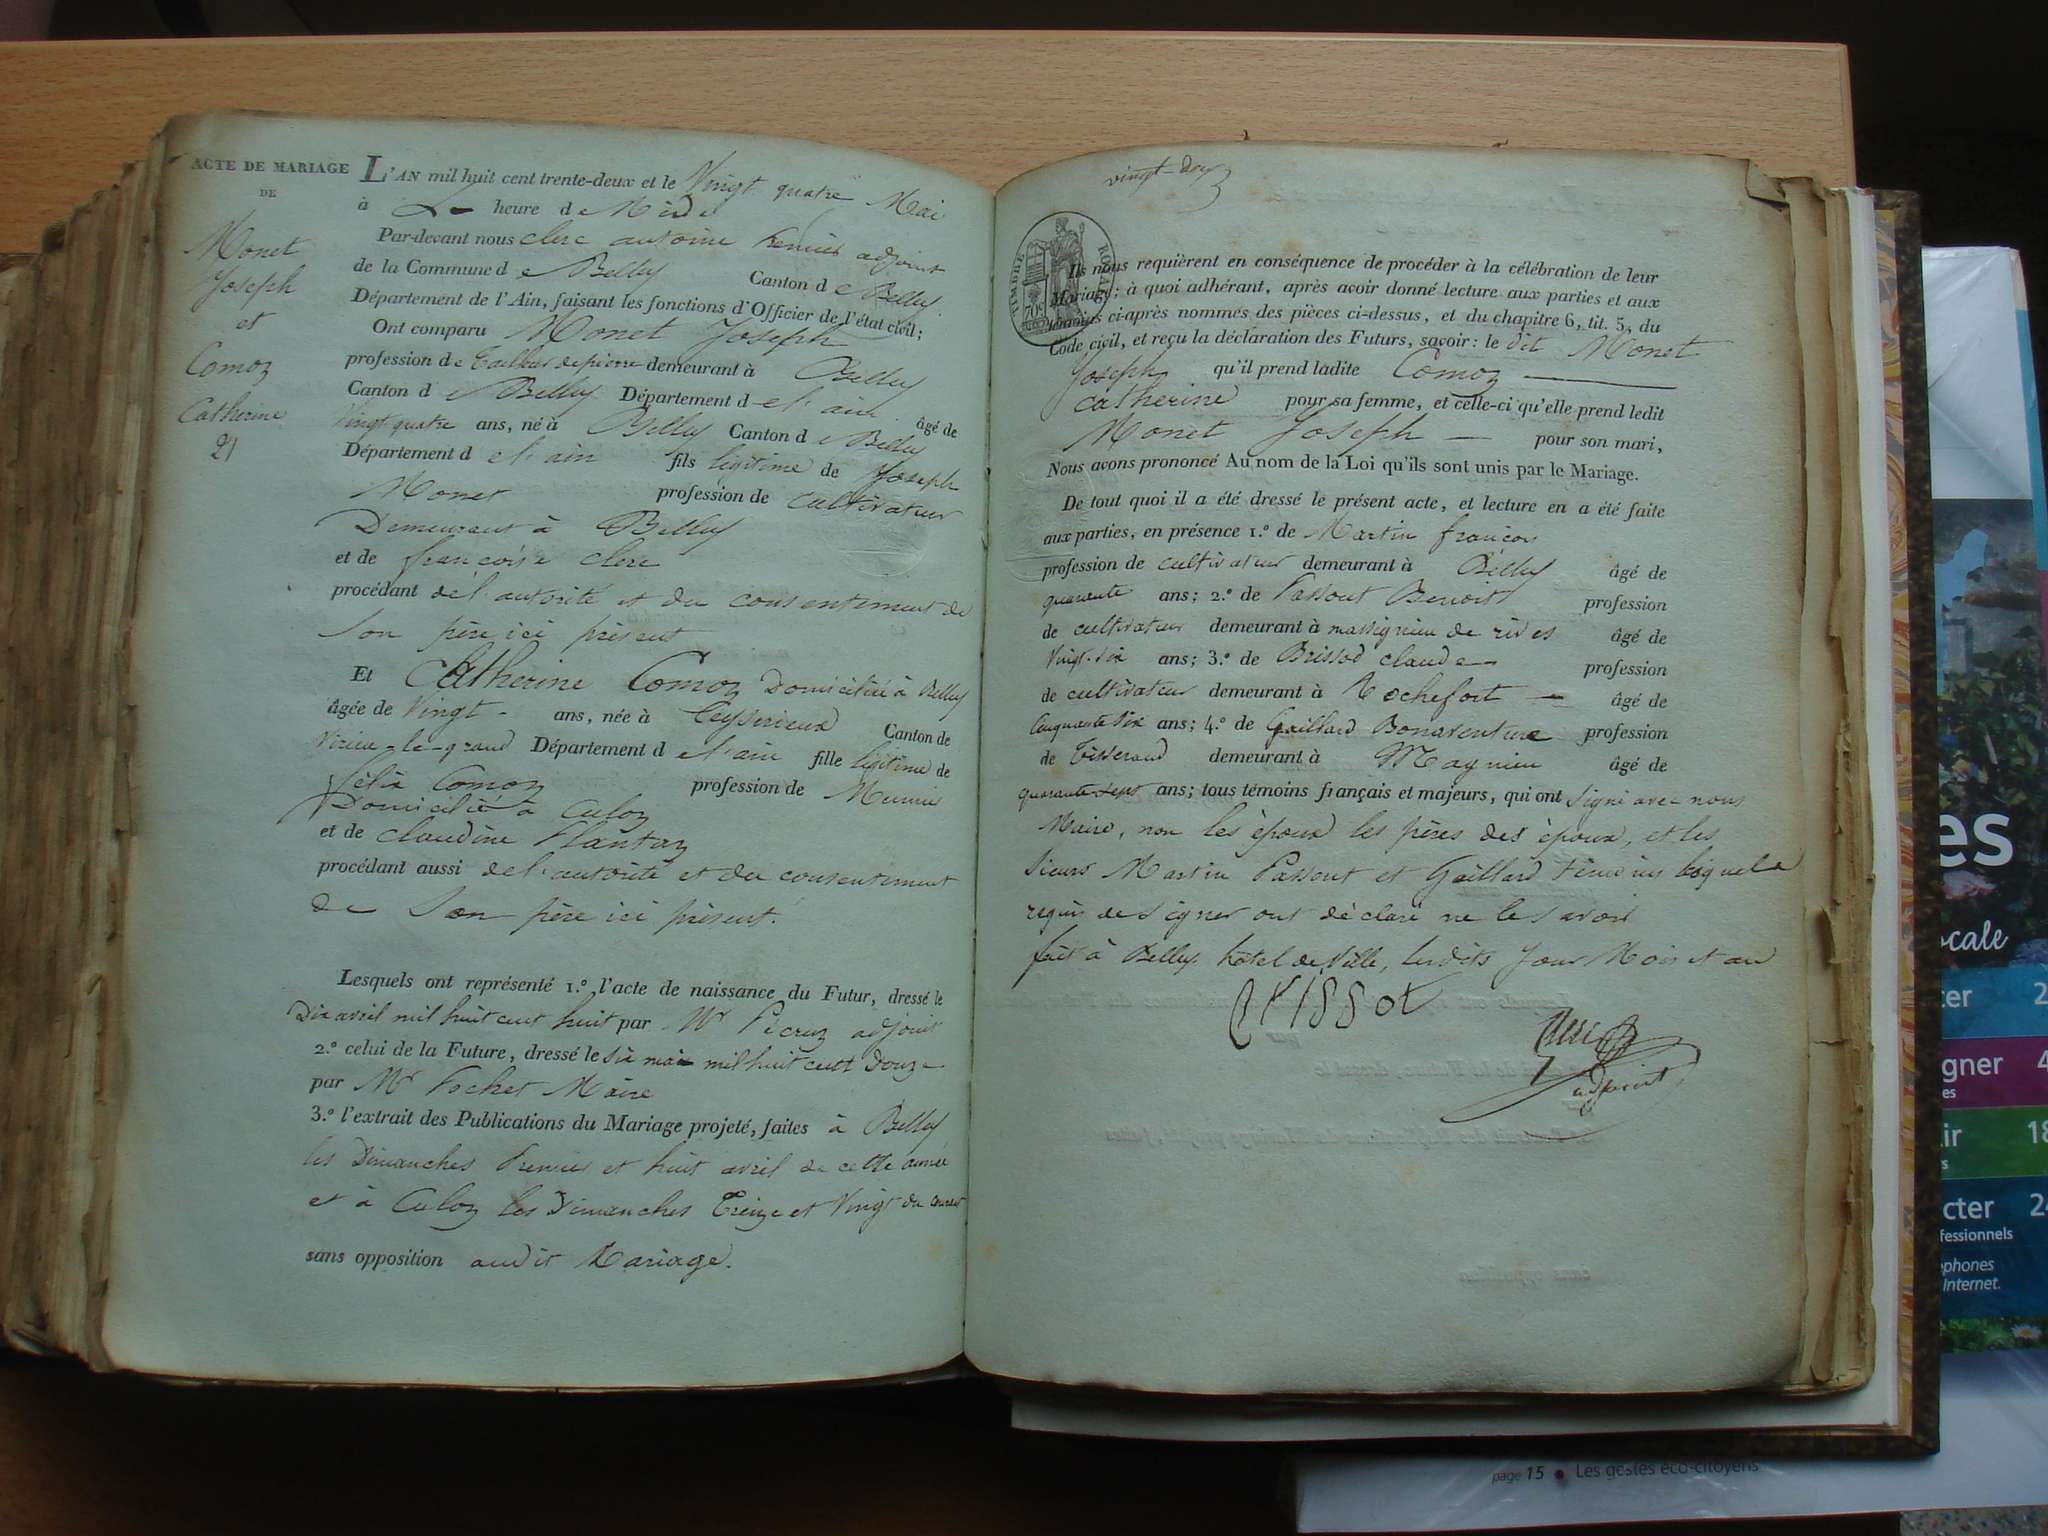 ACTE DE MARIAGE
DE
Monet
Joseph
et
Comoz
Catherine
21
L'AN mil huit cent trente-deux et le Vingt quatre Mai
à heure de Midi
Par-devant nous clerc antoine premier adjoint
de la Commune de Belley Canton de Belley
Département de l'Ain, faisant les fonctions d'Officier de l'état civil;
Ont comparu Monet Joseph
profession de Tailleur de pierre demeurant à Belley
Canton de Belley Département de l'ain âgé de
Vingt quatre ans, né à Belley Canton de Belley
Département de l'ain fils légitime de Joseph
Monet profession de cultivateur
Demeurant à Belley
et de françoise clerc
procédant de l'autorité et du consentement de
Son père ici présent
Et Catherine Comoz Domiciliée à Belley
âgée de Vingt - ans, née à Ceyserieux Canton de
Virieu-le-grand Département de l'ain fille légitime de
félix Comoz profession de Meunier
Domicilié à Culoz
et de claudine Plantaz
procédant aussi de l'autorité et du consentement
de Son père ici présent.
Lesquels ont représenté 1.º l'acte de naissance du Futur, dressé le
Dix avril mil huit cent huit par Mr adjoint
2.º celui de la Future, dressé le six mai mil huit cent Douze
par Mr Maire
3.º l'extrait des Publications du Mariage projeté, faites à Belley
les Dimanches Premier et huit avril de cette année
et à Culoz les Dimanches Treize et Vingt du courant
sans opposition audit Mariage.
vingt-deux
TIMBRE ROYAL
70c
Ils nous requièrent en conséquence de procéder à la célébration de leur
Mariage; à quoi adhérant, après avoir donné lecture aux parties et aux
témoins ci-après nommés des pièces ci-dessus, et du chapitre 6, tit. 5, du
Code civil, et reçu la déclaration des Futurs, savoir: le dit Monet
Joseph qu'il prend ladite Comoz
catherine pour sa femme, et celle-ci qu'elle prend ledit
Monet Joseph — pour son mari,
Nous avons prononcé Au nom de la Loi qu'ils sont unis par le Mariage.
De tout quoi il a été dressé le présent acte, et lecture en a été faite
aux parties, en présence 1.º de Martin françois
profession de cultivateur demeurant à Belley âgé de
quarante ans; 2.º de Passout Benoit profession
de cultivateur demeurant à massignieu de rives âgé de
Vingt-six ans; 3.º de Brissod claude profession
de cultivateur demeurant à Rochefort — âgé de
Cinquante six ans; 4.º de Gaillard Bonaventure profession
de Tisserand demeurant à Magnieu âgé de
quarante sept ans; tous témoins français et majeurs, qui ont signé avec nous
Maire, non les époux les pères des époux, et les
Sieurs Martin Passout et Gaillard témoins
requis de signer ont déclaré ne le savoir
fait à Belley. hôtel de Ville, lesdits Jour Mois et an
Brissot
clerc
adjoint
es
ocale
ter 2
gner 4
es
ir 18
rs
cter 24
fessionnels
éphones
Internet.
page 15 • Les gestes éco-citoyens